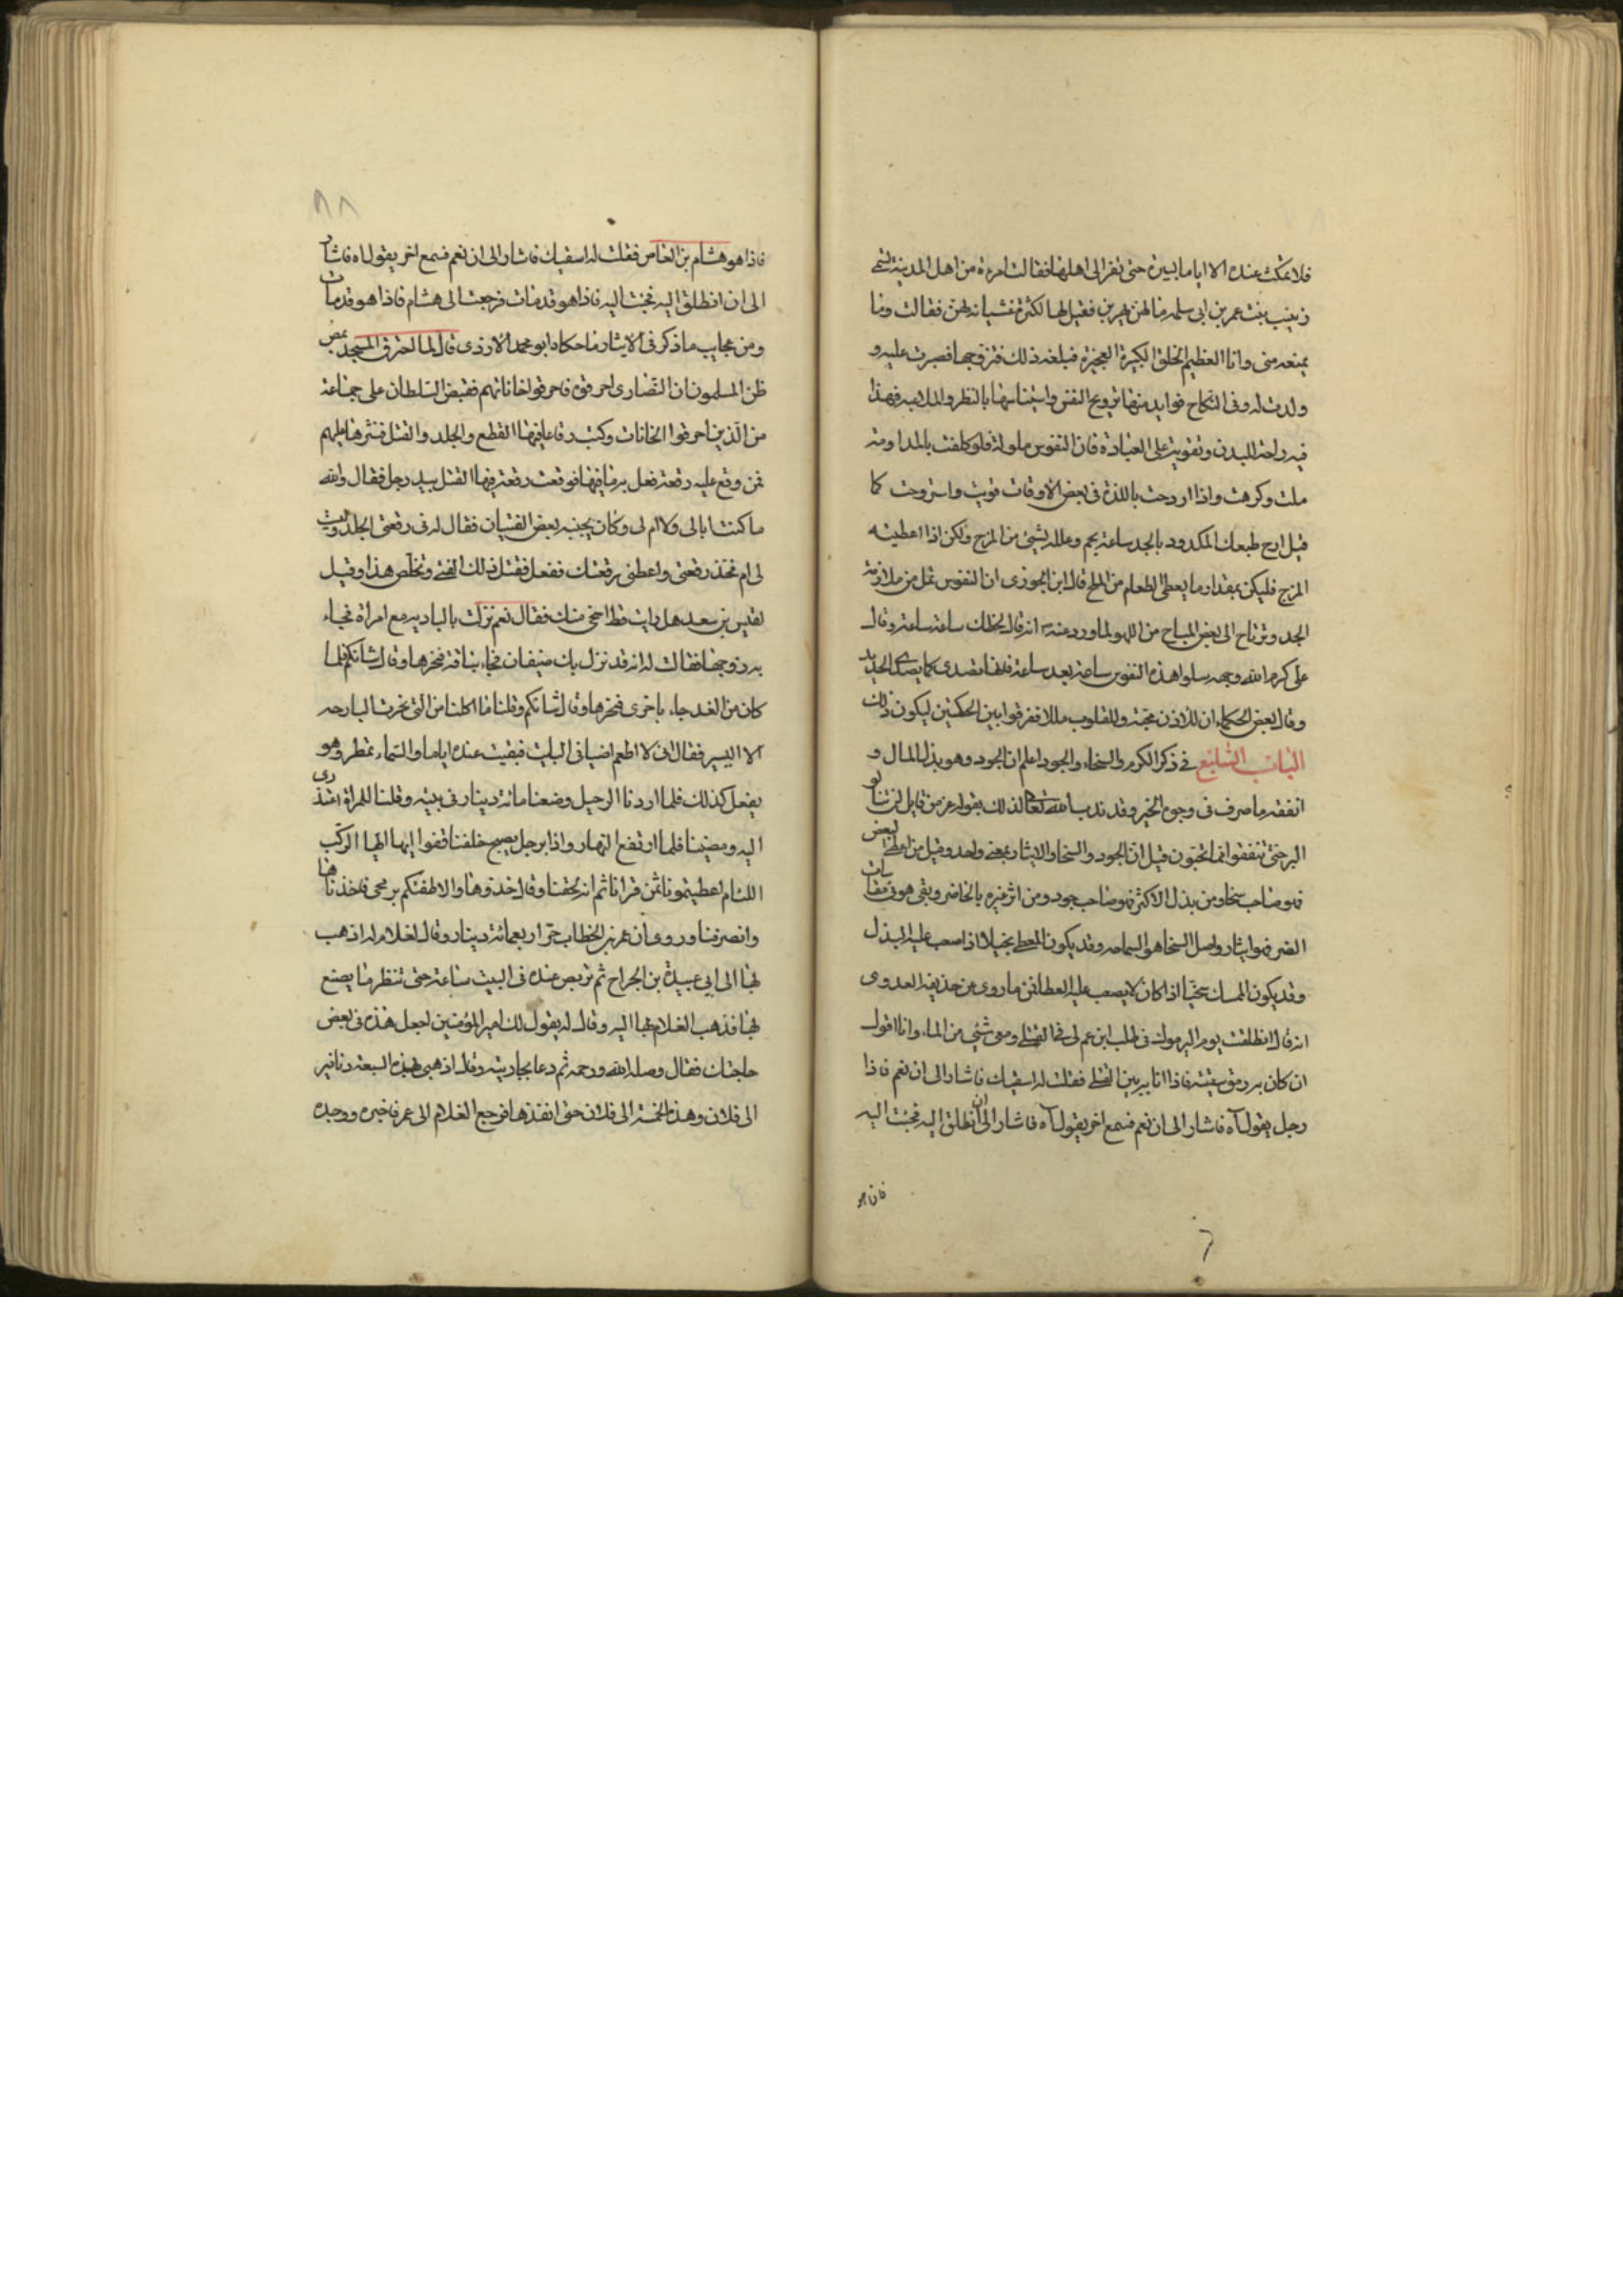 فلا تمكث عنده الا اياما يسيرة حتى تفر الى اهلها فقالت امرءة من اهل المدينة تسمى
زينب بنت عمر بن ابى سلمه ما لهن يهربن فقيل لها لكثرة غشيانه لهن فقالت وما
يمنعه منى وانا العظيم الخلق الكبيرة العجيزة فبلغه ذلك فتزوجها فصبرت عليه و
ولدت له وفى النكاح فوايد منها ترويح النفس وايناسها بالنظر والملاعبه فهذا
فيه راحة للبدن وتقوية على العبادة فان النفوس ملولة فلو كلفت بالمداومة
ملت وكرهت واذا اردحت باللذة فى بعض الاوقات قويت واستروحت كما
قيل ارح طبعك المكدود بالجد ساعة يجم وعلله بشئ من المزح ولكن اذا اعطيته
المزح فليكن بمقدار ما يعطى الطعام من الملح قال ابن الجوزى ان النفوس تمل من ملازمة
الجد وترتاح الى بعض المباح من اللهو لما ورد عنه انه قال لحنظلة ساعة ساعة وقال
على كرم الله وجهه سلوا هذه النفوس ساعة بعد ساعة فانها تصدى كما يصدى الحديد
وقال بعض الحكماء ان للاذن مجة وللقلوب مللا ففرقوا بين الحكمتين ليكون ذلك
الباب السابع فى ذكر الكرم والسخاء والجود اعلم ان الجود وهو بذل المال و
انفقه ما صرف فى وجوه الخير وقد ندب الله تعالى لذلك بقوله عز من قايل لن تنالو
البر حتى تنفقوا مما تحبون قيل ان الجود والسخا والايثار بمعنى واحد وقيل من اعطى البعض
فهو صاحب سخا ومن بذل الاكثر فهو صاحب جود ومن اثر غيره بالحاضر وبقى هو فى مقاسات
الضر فهو ايثار واصل السخا هو السماحه وقد يكون المعطى بخيلا اذا صعب عليه البذل
وقد يكون الممسك سخيا اذا كان لا يصعب عليه العطا فمن ما روى عن حذيفة العدوى
انه قال انطلقت يوم اليرموك فى طلب ابن عم لى فى القتلى ومعى شئ من الماء وانا اقول
ان كان به رمق سقيته فاذا انا به بين القتلى فقلت له اسقيك فاشار الى ان نعم فاذا
رجل يقول آه فاشار الى ان نعم فسمع اخر يقول آه فاشار الى ان انطلق اليه فجئت اليه
فاذا هو
٨٨
فاذا هو هشام بن العاص فقلت له اسقيك فاشار الى ان نعم فسمع اخر يقول اه فاشار
الى ان انطلق اليه فجئت اليه فاذا هو قد مات فرجعت الى هشام فاذا هو قد مات
ومن عجايب ما ذكر فى الايثار ما حكاه ابو محمد الازدى قال لما احترق المسجد بمصر
ظن المسلمون ان النصارى احرقوه فاحرقوا خاناتهم فقبض السلطان على جماعة
من الذين احرقوا الخانات وكتب رقاعا فيها القطع والجلد والقتل فنثرها عليهم
فمن وقع عليه رقعة فعل به ما فيها فوقعت رقعة فيها القتل بيد رجل فقال والله
ما كنت ابالى ولا ام لى وكان بجنبه بعض الفتيان فقال له فى رقعتى الجلد وليت
لى ام فخذ رقعتى واعطنى رقعتك ففعل فقتل ذلك الفتى وتخلص هذا وقيل
لقيس بن سعد هل رايت قط اسخى منك فقال نعم نزلت بالباديه مع امراة فجاء
به زوجها فقالت له انه قد نزل بك ضيفان فجاء بناقة فنحرها وقال شانكم فلما
كان من الغد جاء باخرى فنحرها وقال شانكم وقلنا ما اكلنا من التى نحرت البارحه
الا اليسير فقال انى لا اطعم اضيافى البايت فبقيت عنده اياما والسماء تمطر وهو
يفعل كذلك فلما اردنا الرحيل وضعنا مائة دينار فى بيته وقلنا للمراة اعتذرى
اليه ومضينا فلما ارتفع النهار واذا برجل يصيح خلفنا قفوا ايها الركب
اللئام اعطيتمونا ثمن قرانا ثم انه لحقنا وقال خذوها والا طعنتكم برمحى فاخذناها
وانصرفنا وروى ان عمر بن الخطاب صر اربعمائة دينار وقال لغلام له اذهب
بها الى ابى عبيدة بن الجراح ثم تربص عنده فى البيت ساعة حتى تنظر ما يصنع
بها فذهب الغلام بها اليه وقال له يقول لك امير المؤمنين اجعل هذه فى بعض
حاجتك فقال وصله الله ورحمه ثم دعا بجاريته وقال اذهبى بهذه السبعة دنانير
الى فلان وهذه الخمسة الى فلان حتى انفذها فرجع الغلام الى عمر فاخبره ووجده